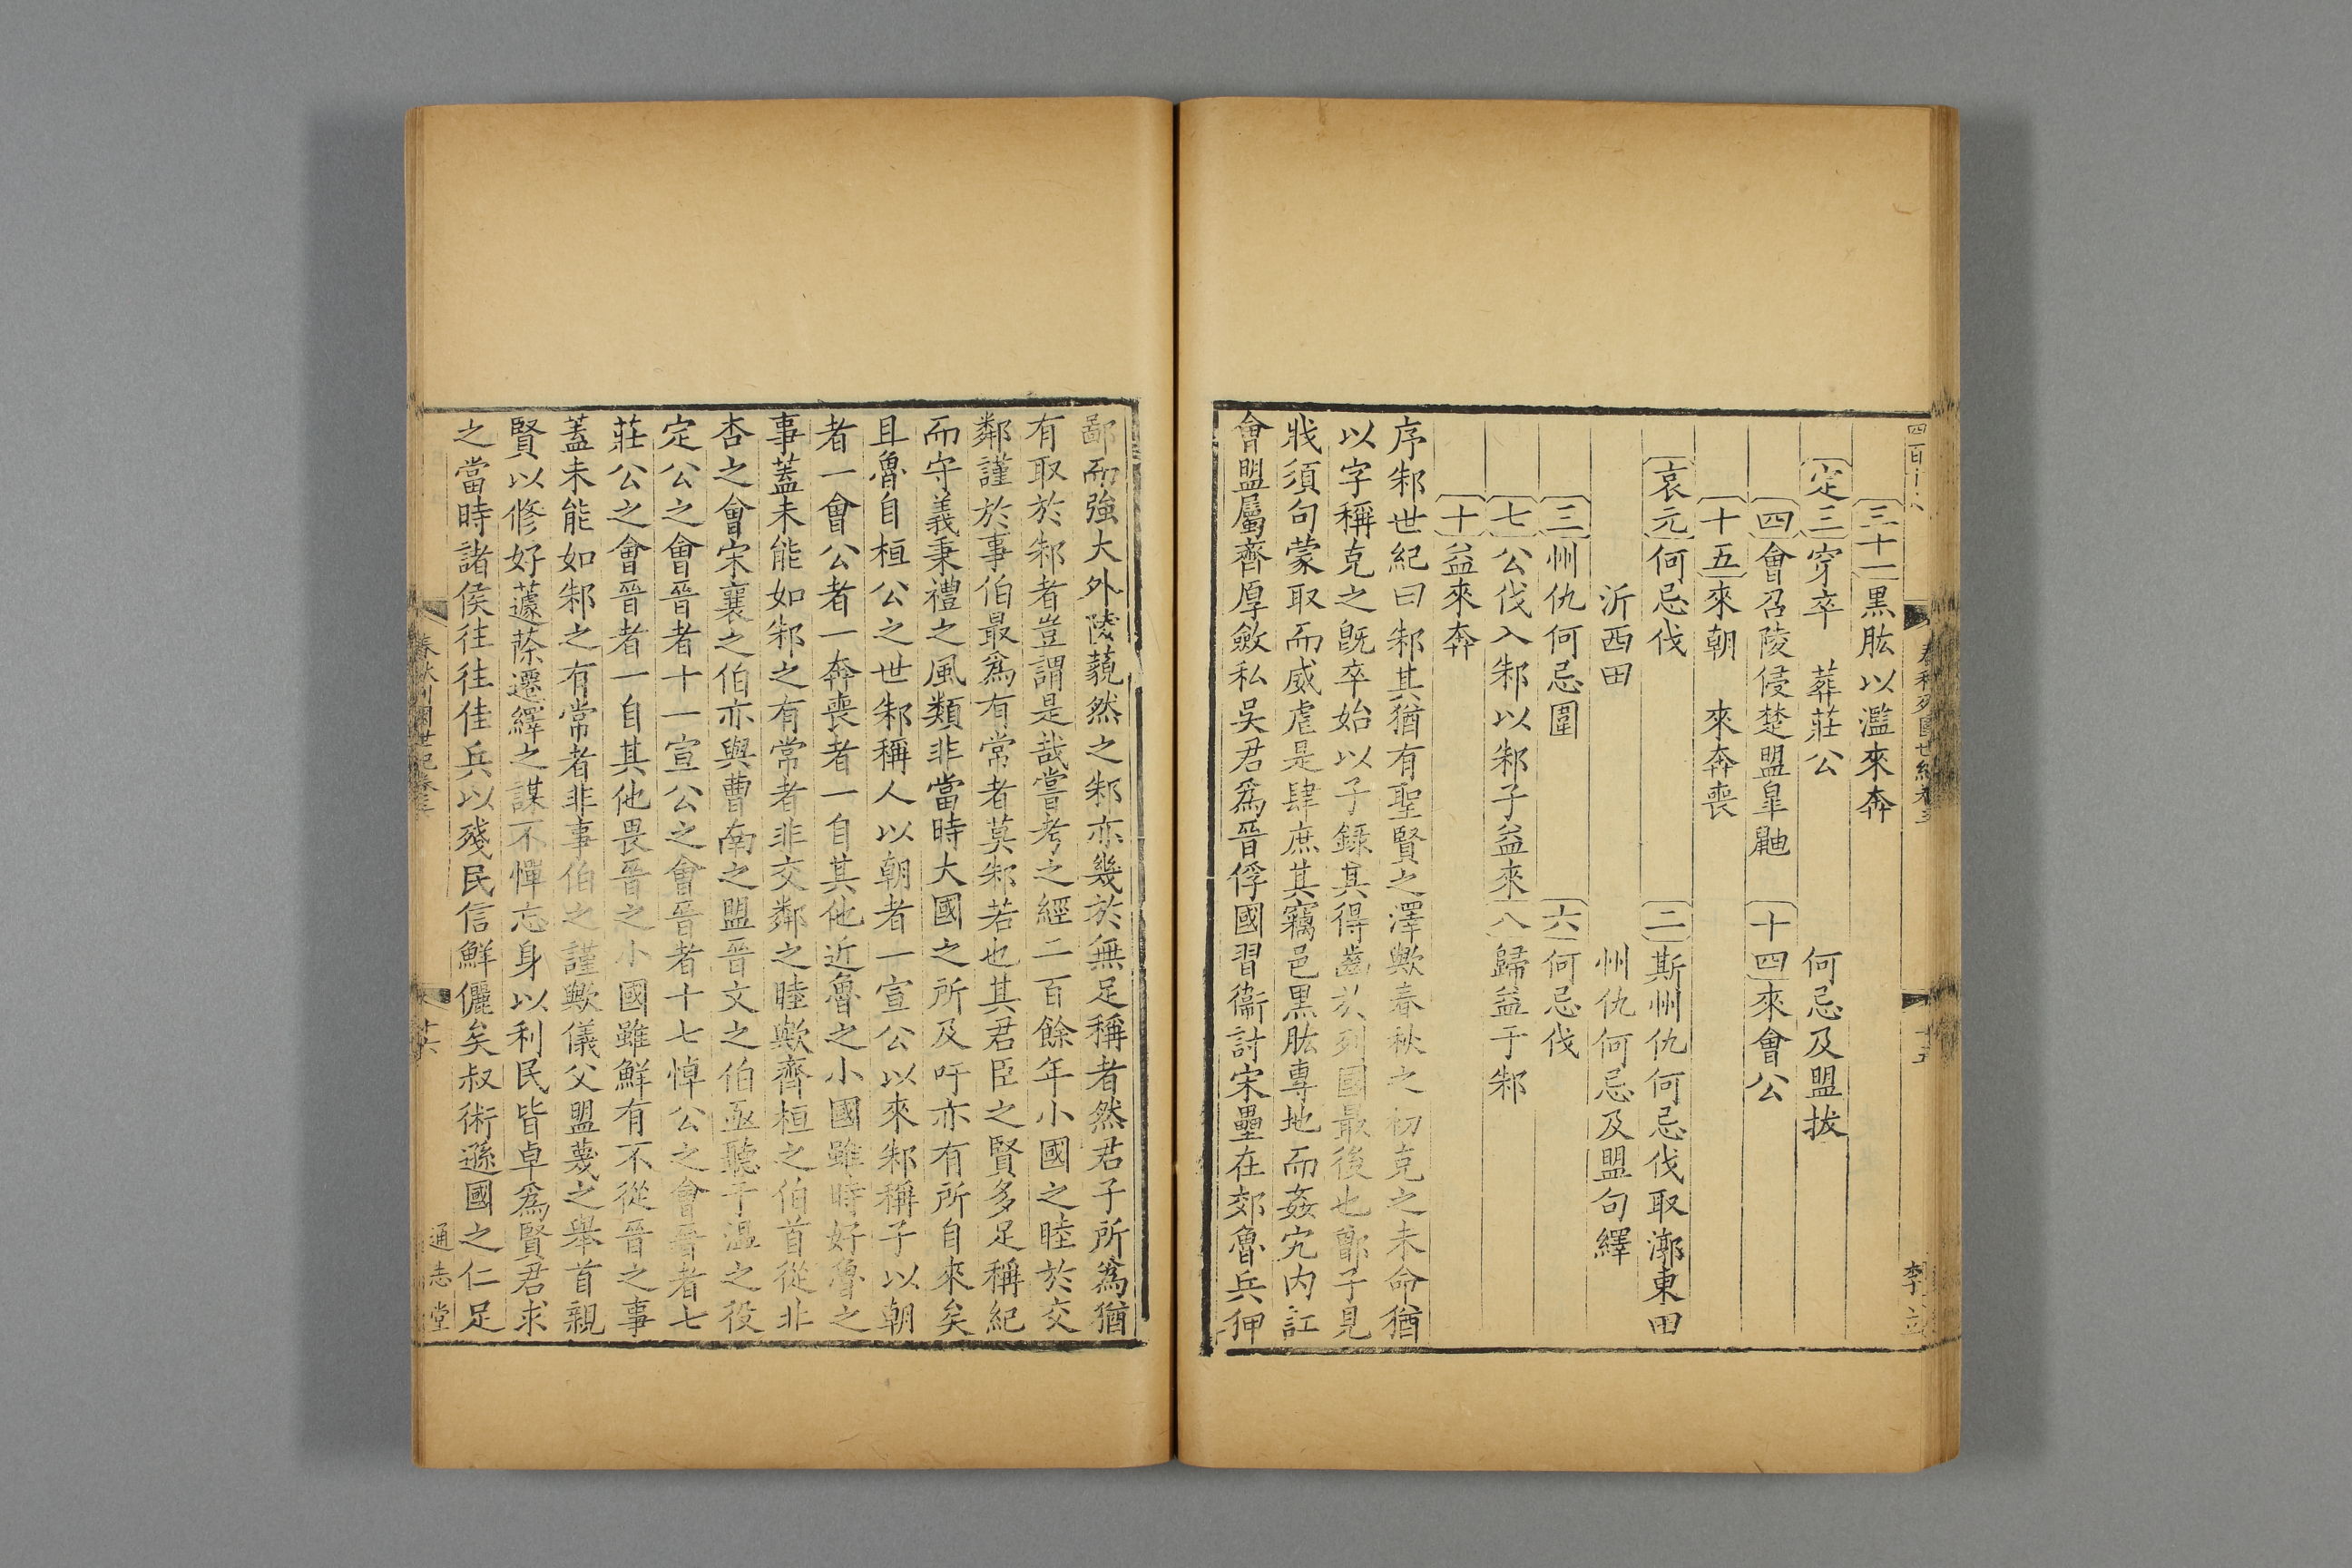 三十一黒肱以濫來奔
定三穿卒　葬莊公　何忌及盟拔
四會召陵侵楚盟皐鼬　十四來會公
十五來朝　來奔喪
哀元何忌伐　二斯州仇何忌伐取漷東田
沂西田　州仇何忌及盟句繹
三州仇何忌圍　六何忌伐
七公伐入邾以邾子益來　八歸益于邾
十益來奔
序邾世紀曰邾其猶有聖賢之澤歟春秋之初克之未命猶
以字稱克之旣卒始以子録其得齒於列國最後也鄫子見
戕須句蒙取而威虐是肆庶其竊邑黒肱專地而姦宄内訌
會盟屬齊厚斂私吳君爲晉俘國習衞討宋壘在郊魯兵狎
鄙而強大外陵藐然之邾亦幾於無足稱者然君子所爲猶
有取於邾者豈謂是哉嘗考之經二百餘年小國之睦於交
鄰謹於事伯最爲有常者莫邾若也其君臣之賢多足稱紀
而守義秉禮之風類非當時大國之所及吁亦有所自來矣
且魯自桓公之世邾稱人以朝者一宣公以來邾稱子以朝
者一會公者一奔喪者一自其他近魯之小國雖時好魯之
事蓋未能如邾之有常者非交鄰之睦歟齊桓之伯首從非
杏之會宋襄之伯亦與曹南之盟晉文之伯亟聽于溫之役
定公之會晉者十一宣公之會晉者十七悼公之會晉者七
莊公之會晉者一自其他畏晉之小國雖鮮有不從晉之事
蓋未能如邾之有常者非事伯之謹歟儀父盟蔑之舉首親
賢以修好蘧蒢遷繹之謀不憚忘身以利民皆卓爲賢君求
之當時諸侯往往佳兵以殘民信鮮儷矣叔術遜國之仁足
春秋列國世紀卷三
十五
李立
通志堂